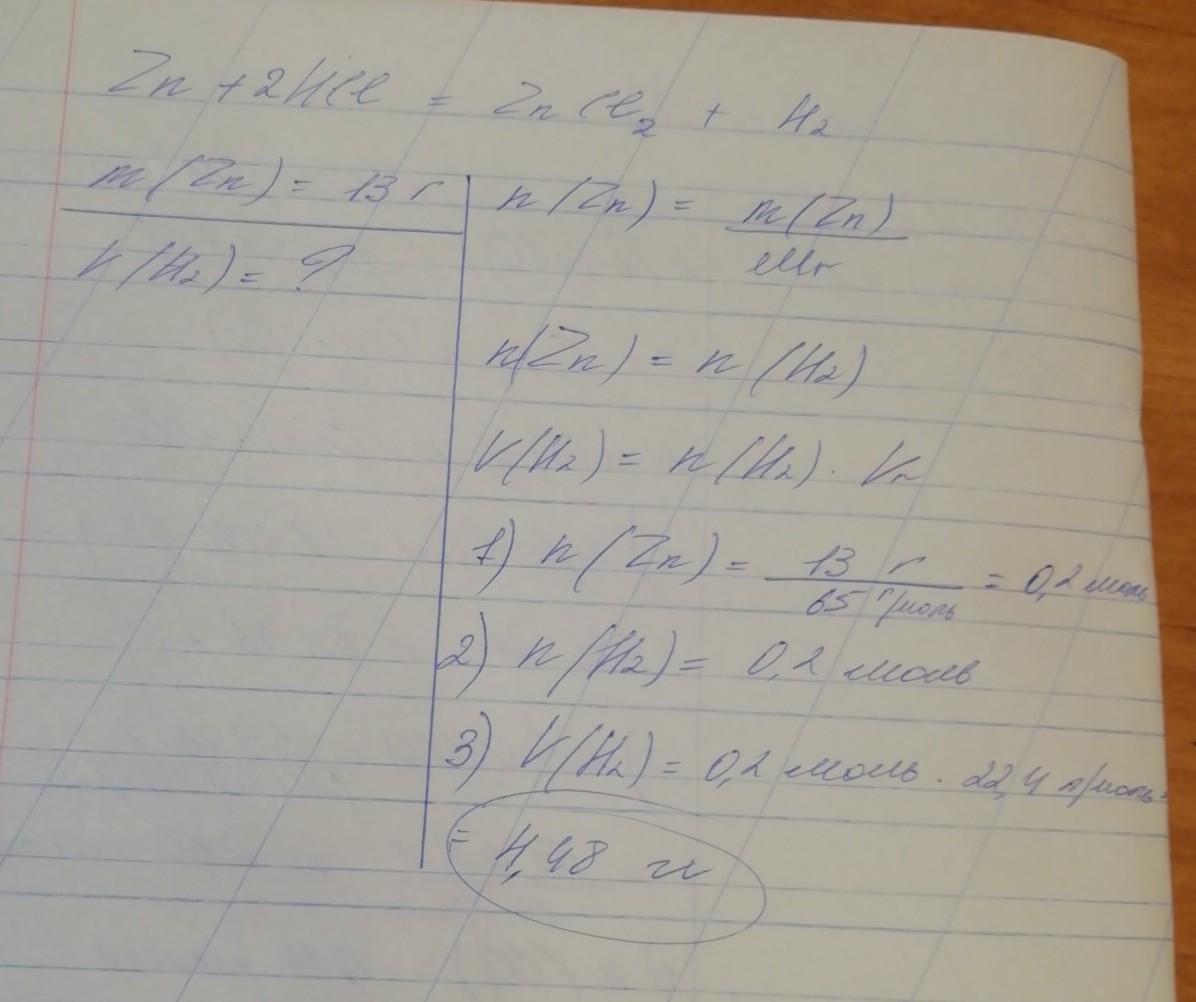 Zn + 2HCl = ZnCl₂ + H₂
m(Zn) = 13 г
V(H₂) = ?
n(Zn) = m(Zn) / Mr
n(Zn) = n(H₂)
V(H₂) = n(H₂) · Vm
1) n(Zn) = 13 г / 65 г/моль = 0,2 моль
2) n(H₂) = 0,2 моль
3) V(H₂) = 0,2 моль · 22,4 л/моль =
= 4,48 л